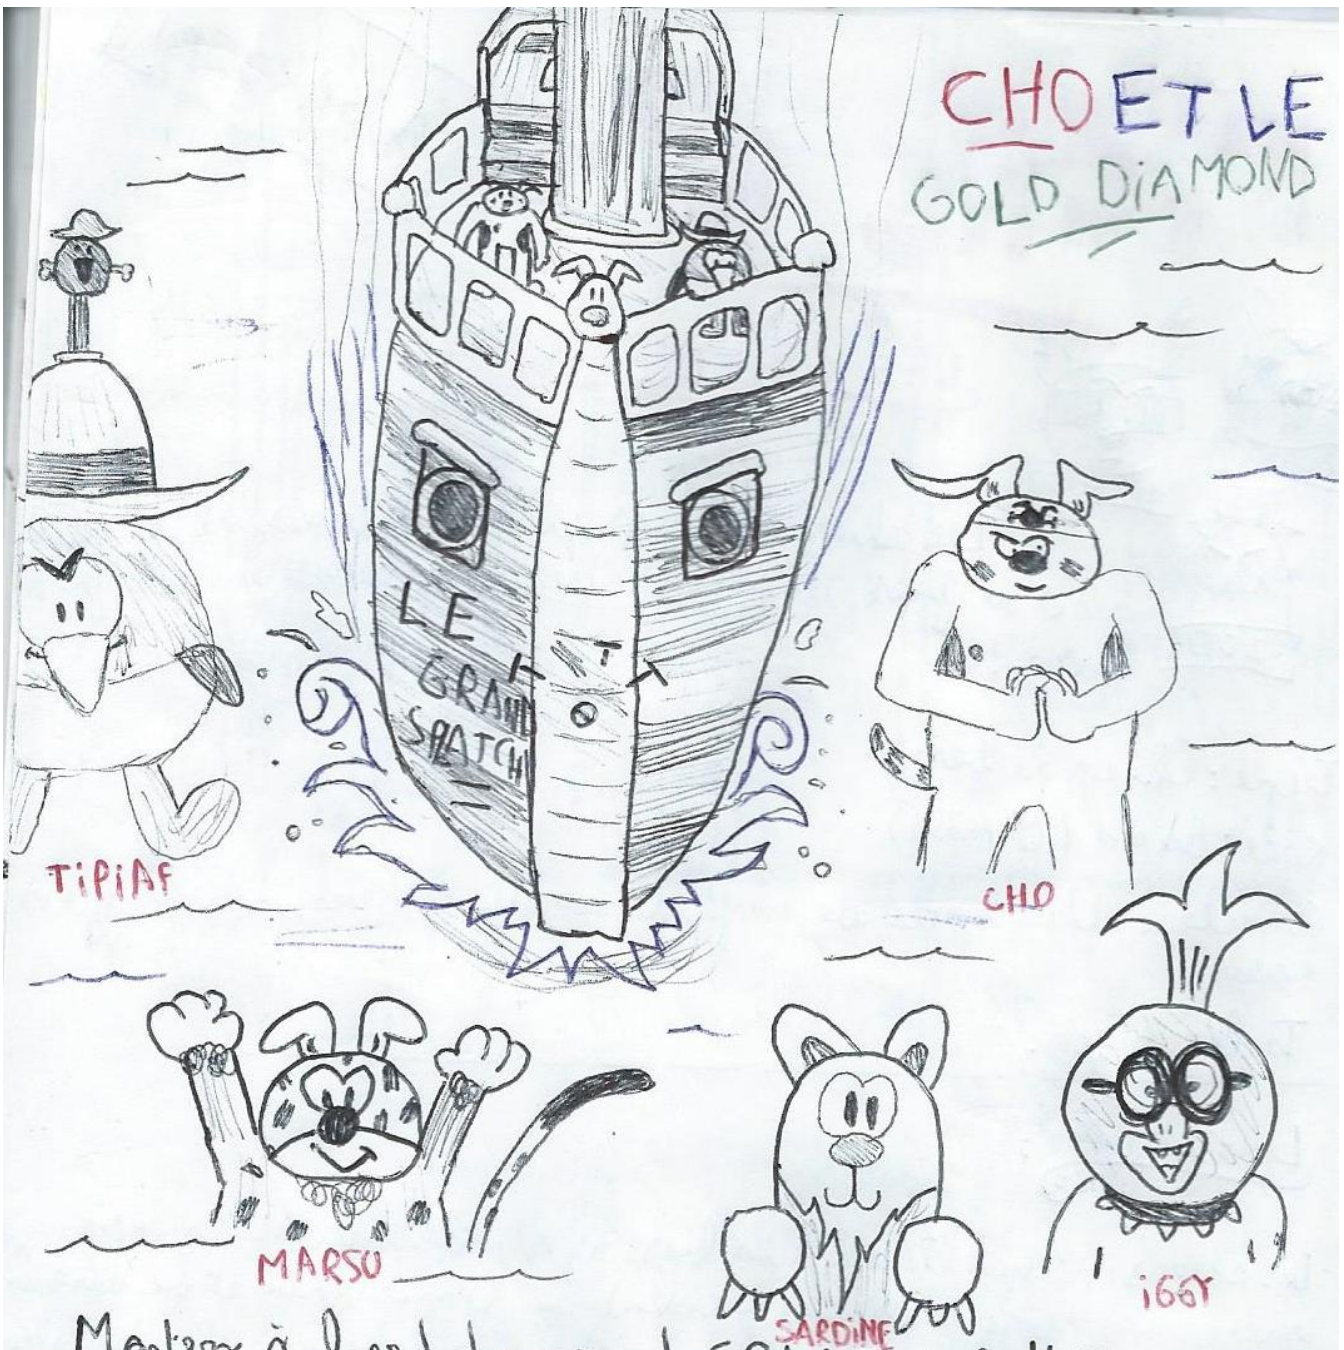 CHO ET LE
GOLD DiAMOND
LE
GRAND
SPLATCH
TiPiAF
CHO
MARSU
SARDiNE
iGGY
à bord